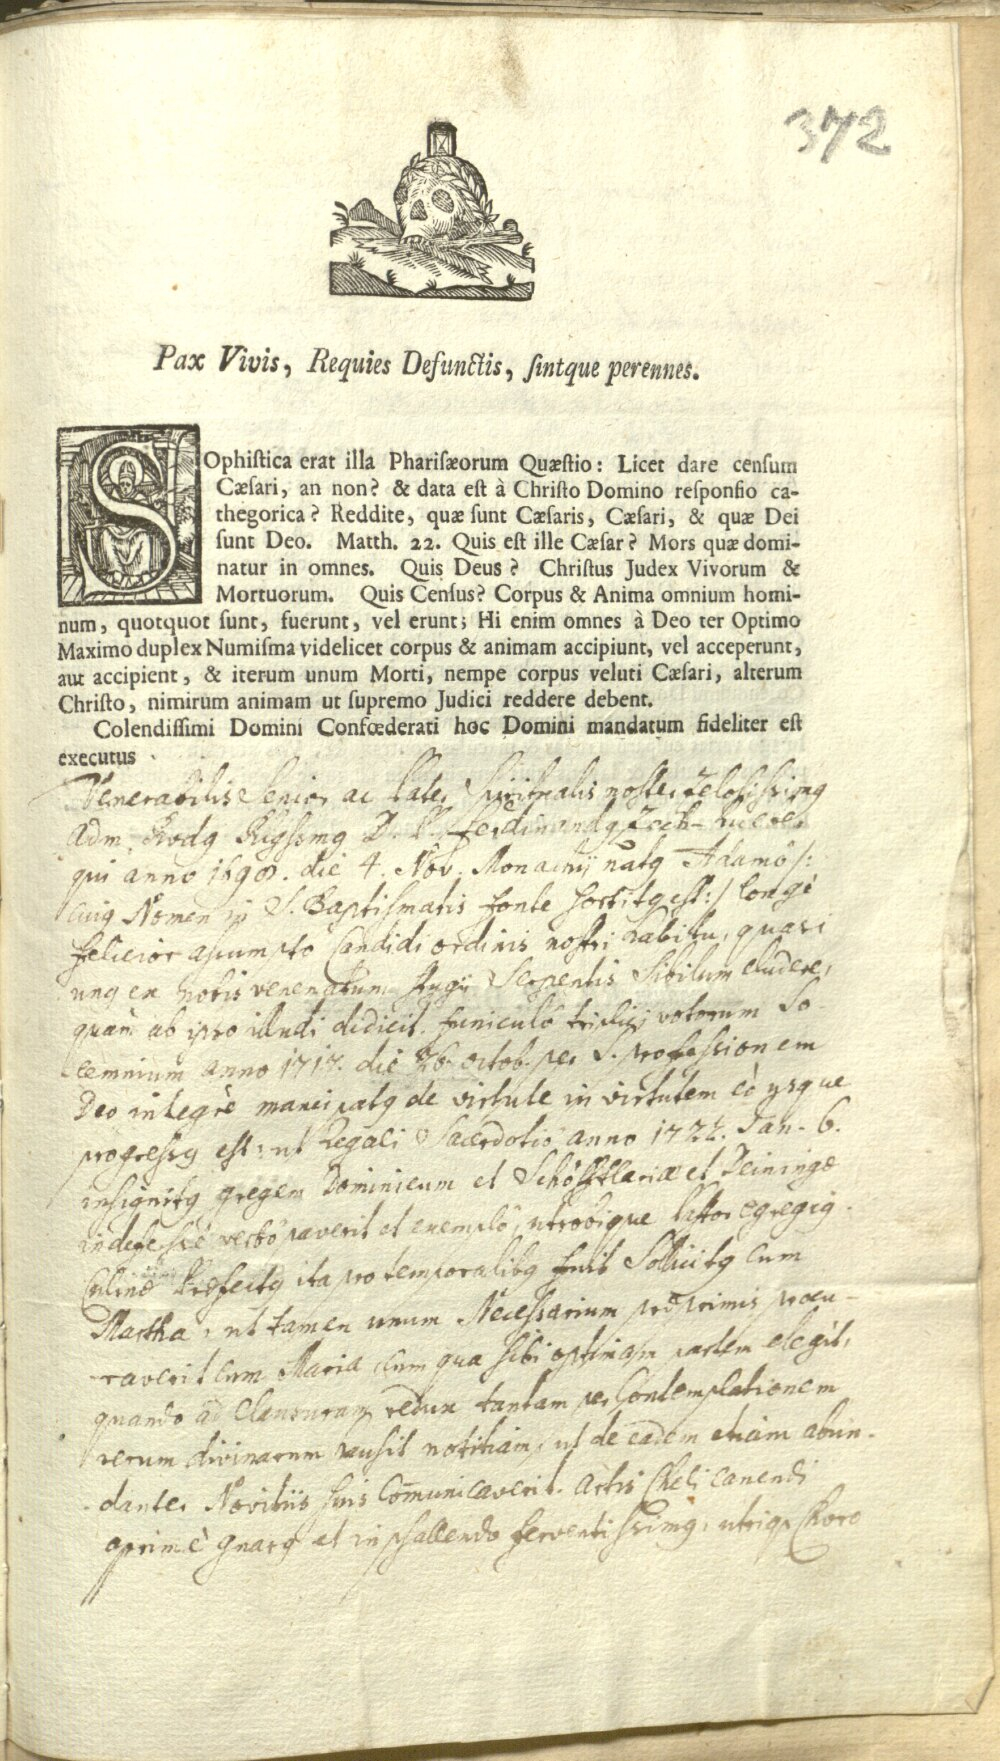 372
Pax Vivis, Requies Defunctis, sintque perennes.
SOphistica erat illa Pharisæorum Quæstio: Licet dare censum
Cæsari, an non? & data est à Christo Domino responsio ca-
thegorica? Reddite, quæ sunt Cæsaris, Cæsari, & quæ Dei
sunt Deo. Matth. 22. Quis est ille Cæsar? Mors quæ domi-
natur in omnes. Quis Deus? Christus Judex Vivorum &
Mortuorum. Quis Census? Corpus & Anima omnium homi-
num, quotquot sunt, fuerunt, vel erunt; Hi enim omnes à Deo ter Optimo
Maximo duplex Numisma videlicet corpus & animam accipiunt, vel acceperunt,
aut accipient, & iterum unum Morti, nempe corpus veluti Cæsari, alterum
Christo, nimirum animam ut supremo Judici reddere debent.
Colendissimi Domini Confœderati hoc Domini mandatum fideliter est
executus
Venerabilis Senior ac Pater Spiritualis noster zelosissimg
adm. Rvdg Rigssmg D. P. Ferdinandg
qui anno 1698. die 4. Nov. Monachij natg Adamô /:
cuig Nomen in S. Baptismatis fonte sortitg est :/ longè
felicior assumpto Candidi ordinis nostri habitu, quasi
ung ex nobis venenatum Stygii Serpentis Sibilum eludere,
quàm ab ipso illudi didicit. funiculô triplici votorum So-
lemnium anno 1717. die 26. octob. per S. professionem
Deo integrè mancipatg de virtute in virtutem eò usque
progressg est, ut Regali Sacerdotiô anno 1722. Jan. 6.
insignitg gregem Dominicum et Schöfftlariæ et Deiningæ
indefessè verbô paverit et exemplô, utrobique Pastor egregig.
Culinæ Præfectg ita pro temporalibg fuit Sollicitg cum
Martha, ut tamen unum Necessarium præprimis procu-
raverit cum Maria, cum qua sibi optimam partem elegit,
quando ad Clausuram redux tantam per Contemplationem
rerum divinarum hausit notitiam, ut de eadem etiam abun-
danter Novitiis suis Comunicaverit. Artis Cheli canendi
apprimè gnarg et in psallendo ferventissimg, utriqz Choro